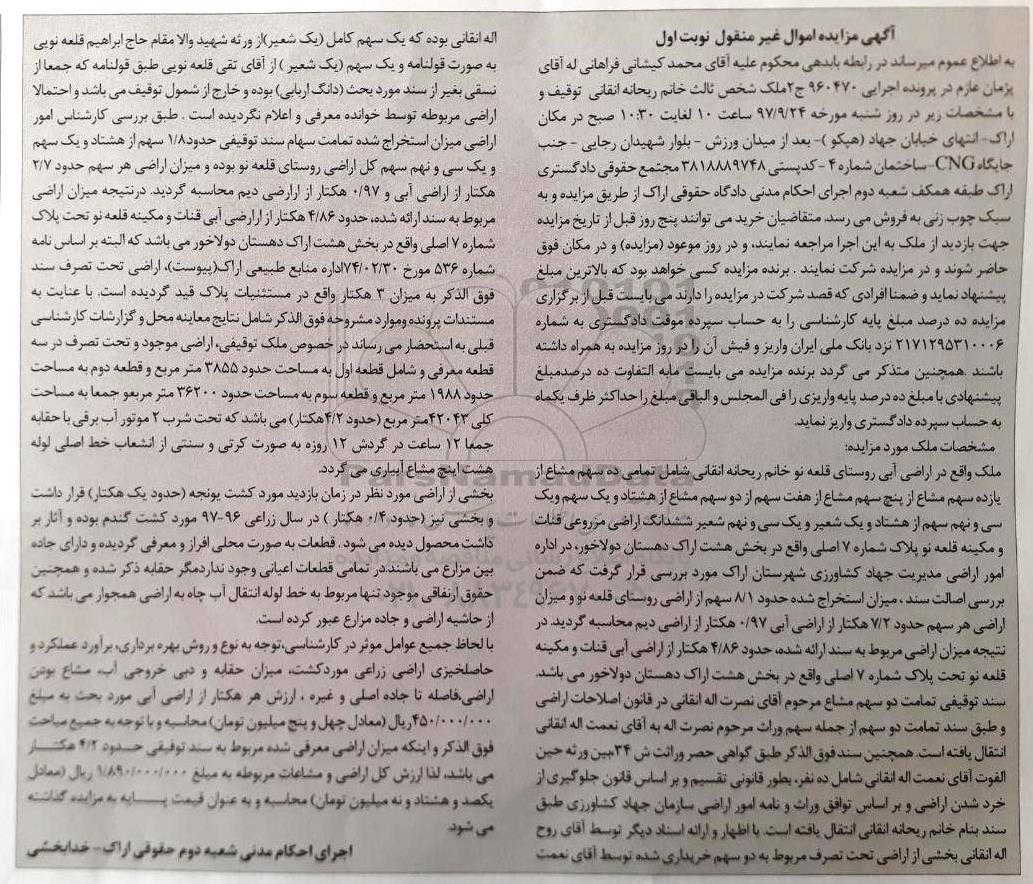 آگهی مزایده اموال غیر منقول نوبت اول
به اطلاع عموم میرساند در رابطه بابدهی محکوم علیه آقای محمد کیشانی فراهانی له آقای
پژمان عازم در پرونده اجرایی ۹۶۰۴۷۰ ج۲ملک شخص ثالث خانم ریحانه انقانی توقیف و
با مشخصات زیر در روز شنبه مورخه ۹۷/۹/۲۴ ساعت ۱۰ لغایت ۱۰:۳۰ صبح در مکان
اراک- انتهای خیابان جهاد (هپکو )- بعد از میدان ورزش - بلوار شهیدان رجایی - جنب
جایگاه CNG-ساختمان شماره ۴ - کدپستی ۳۸۱۸۸۸۹۷۴۸ مجتمع حقوقی دادگستری
اراک طبقه همکف شعبه دوم اجرای احکام مدنی دادگاه حقوقی اراک از طریق مزایده و به
سبک چوب زنی به فروش می رسد. متقاضیان خرید می توانند پنج روز قبل از تاریخ مزایده
جهت بازدید از ملک به این اجرا مراجعه نمایند، و در روز موعود (مزایده) و در مکان فوق
حاضر شوند و در مزایده شرکت نمایند . برنده مزایده کسی خواهد بود که بالاترین مبلغ
پیشنهاد نماید و ضمنا افرادی که قصد شرکت در مزایده را دارند می بایست قبل از برگزاری
مزایده ده درصد مبلغ پایه کارشناسی را به حساب سپرده موقت دادگستری به شماره
۲۱۷۱۲۹۵۳۱۰۰۰۶ نزد بانک ملی ایران واریز و فیش آن را در روز مزایده به همراه داشته
باشند .همچنین متذکر می گردد برنده مزایده می بایست مابه التفاوت ده درصدمبلغ
پیشنهادی با مبلغ ده درصد پایه واریزی را فی المجلس و الباقی مبلغ را حداکثر ظرف یکماه
به حساب سپرده دادگستری واریز نماید.
مشخصات ملک مورد مزایده:
ملک واقع در اراضی آبی روستای قلعه نو خانم ریحانه انقانی شامل تمامی ده سهم مشاع از
یازده سهم مشاع از پنج سهم مشاع از هفت سهم از دو سهم مشاع از هشتاد و یک سهم ویک
سی و نهم سهم از هشتاد و یک شعیر و یک سی و نهم شعیر ششدانگ اراضی مزروعی قنات
و مکینه قلعه نو پلاک شماره ۷ اصلی واقع در بخش هشت اراک دهستان دولاخور، در اداره
امور اراضی مدیریت جهاد کشاورزی شهرستان اراک مورد بررسی قرار گرفت که ضمن
بررسی اصالت سند ، میزان استخراج شده حدود ۸/۱ سهم از اراضی روستای قلعه نو و میزان
اراضی هر سهم حدود ۷/۲ هکتار از اراضی آبی و ۰/۹۷ هکتار از اراضی دیم محاسبه گردید. در
نتیجه میزان اراضی مربوط به سند ارائه شده، حدود ۴/۸۶ هکتار از اراضی آبی قنات و مکینه
قلعه نو تحت پلاک شماره ۷ اصلی واقع در بخش هشت اراک دهستان دولاخور می باشد.
سند توقیفی تمامت دو سهم مشاع مرحوم آقای نصرت اله انقانی در قانون اصلاحات اراضی
و طبق سند تمامت دو سهم از جمله سهم وراث مرحوم نصرت اله به آقای نعمت اله انقانی
انتقال یافته است. همچنین سند فوق الذکر طبق گواهی حصر وراثت ش ۳۴مبین ورثه حین
الفوت آقای نعمت اله انقانی شامل ده نفر، بطور قانونی تقسیم و بر اساس قانون جلوگیری از
خرد شدن اراضی و بر اساس توافق وراث و نامه امور اراضی سازمان جهاد کشاورزی طبق
سند بنام خانم ریحانه انقانی انتقال یافته است. با اظهار و ارائه اسناد دیگر توسط آقای روح
اله انقانی بخشی از اراضی تحت تصرف مربوط به دو سهم خریداری شده توسط آقای نعمت
اله انقانی بوده که یک سهم کامل (یک شعیر)از ورثه شهید والا مقام حاج ابراهیم قلعه نویی
به صورت قولنامه و یک سهم (یک شعیر ) از آقای تقی قلعه نویی طبق قولنامه که جمعا از
نسقی بغیر از سند مورد بحث (دانگ اربابی) بوده و خارج از شمول توقیف می باشد و احتمالا
اراضی مربوطه توسط خوانده معرفی و اعلام نگردیده است . طبق بررسی کارشناس امور
اراضی میزان استخراج شده تمامت سهام سند توقیفی حدود۱/۸ سهم از هشتاد و یک سهم
و یک سی و نهم سهم کل اراضی روستای قلعه نو بوده و میزان اراضی هر سهم حدود ۲/۷
هکتار از اراضی آبی و ۰/۹۷ هکتار از ارارضی دیم محاسبه گردید. درنتیجه میزان اراضی
مربوط به سند ارائه شده، حدود ۴/۸۶ هکتار از ارارضی آبی قنات و مکینه قلعه نو تحت پلاک
شماره ۷ اصلی واقع در بخش هشت اراک دهستان دولاخور می باشد که البته بر اساس نامه
شماره ۵۳۶ مورخ ۷۴/۰۲/۳۰اداره منابع طبیعی اراک(پیوست)، اراضی تحت تصرف سند
فوق الذکر به میزان ۳ هکتار واقع در مستثنیات پلاک قید گردیده است. با عنایت به
مستندات پرونده وموارد مشروحه فوق الذکر شامل نتایج معاینه محل و گزارشات کارشناسی
قبلی به استحضار می رساند در خصوص ملک توقیفی، اراضی موجود و تحت تصرف در سه
قطعه معرفی و شامل قطعه اول به مساحت حدود ۳۸۵۵ متر مربع و قطعه دوم به مساحت
حدود ۱۹۸۸ متر مربع و قطعه سوم به مساحت حدود ۳۶۲۰۰ متر مربعو جمعا به مساحت
کلی ۴۲۰۴۳متر مربع (حدود ۴/۲هکتار) می باشد که تحت شرب ۲ موتور آب برقی با حقابه
جمعا ۱۲ ساعت در گردش ۱۲ روزه به صورت کرتی و سنتی از انشعاب خط اصلی لوله
هشت اینچ مشاع آبیاری می گردد.
بخشی از اراضی مورد نظر در زمان بازدید مورد کشت یونجه (حدود یک هکتار) قرار داشت
و بخشی نیز (حدود ۰/۴ هکتار ) در سال زراعی ۹۶-۹۷ مورد کشت گندم بوده و آثار بر
داشت محصول دیده می شود . قطعات به صورت محلی افراز و معرفی گردیده و دارای جاده
بین مزارع می باشند.در تمامی قطعات اعیانی وجود نداردمگر حقابه ذکر شده و همچنین
حقوق ارتفاقی موجود تنها مربوط به خط لوله انتقال آب چاه به اراضی همجوار می باشد که
از حاشیه اراضی و جاده مزارع عبور کرده است.
با لحاظ جمیع عوامل موثر در کارشناسی،توجه به نوع و روش بهره برداری، برآورد عملکرد و
حاصلخیزی اراضی زراعی موردکشت، میزان حقابه و دبی خروجی آب، مشاع بودن
اراضی،فاصله تا جاده اصلی و غیره ، ارزش هر هکتار از اراضی آبی مورد بحث به مبلغ
۴۵۰/۰۰۰/۰۰۰ریال (معادل چهل و پنج میلیون تومان) محاسبه و با توجه به جمیع مباحث
فوق الذکر و اینکه میزان اراضی معرفی شده مربوط به سند توقیفی حدود ۴/۲ هکتار
می باشد، لذا ارزش کل اراضی و مشاعات مربوطه به مبلغ ۱/۸۹۰/۰۰۰/۰۰۰ ریال (معادل
یکصد و هشتاد و نه میلیون تومان) محاسبه و به عنوان قیمت پایه به مزایده گذاشته
می شود.
اجرای احکام مدنی شعبه دوم حقوقی اراک- خدابخشی
ParsNamadData